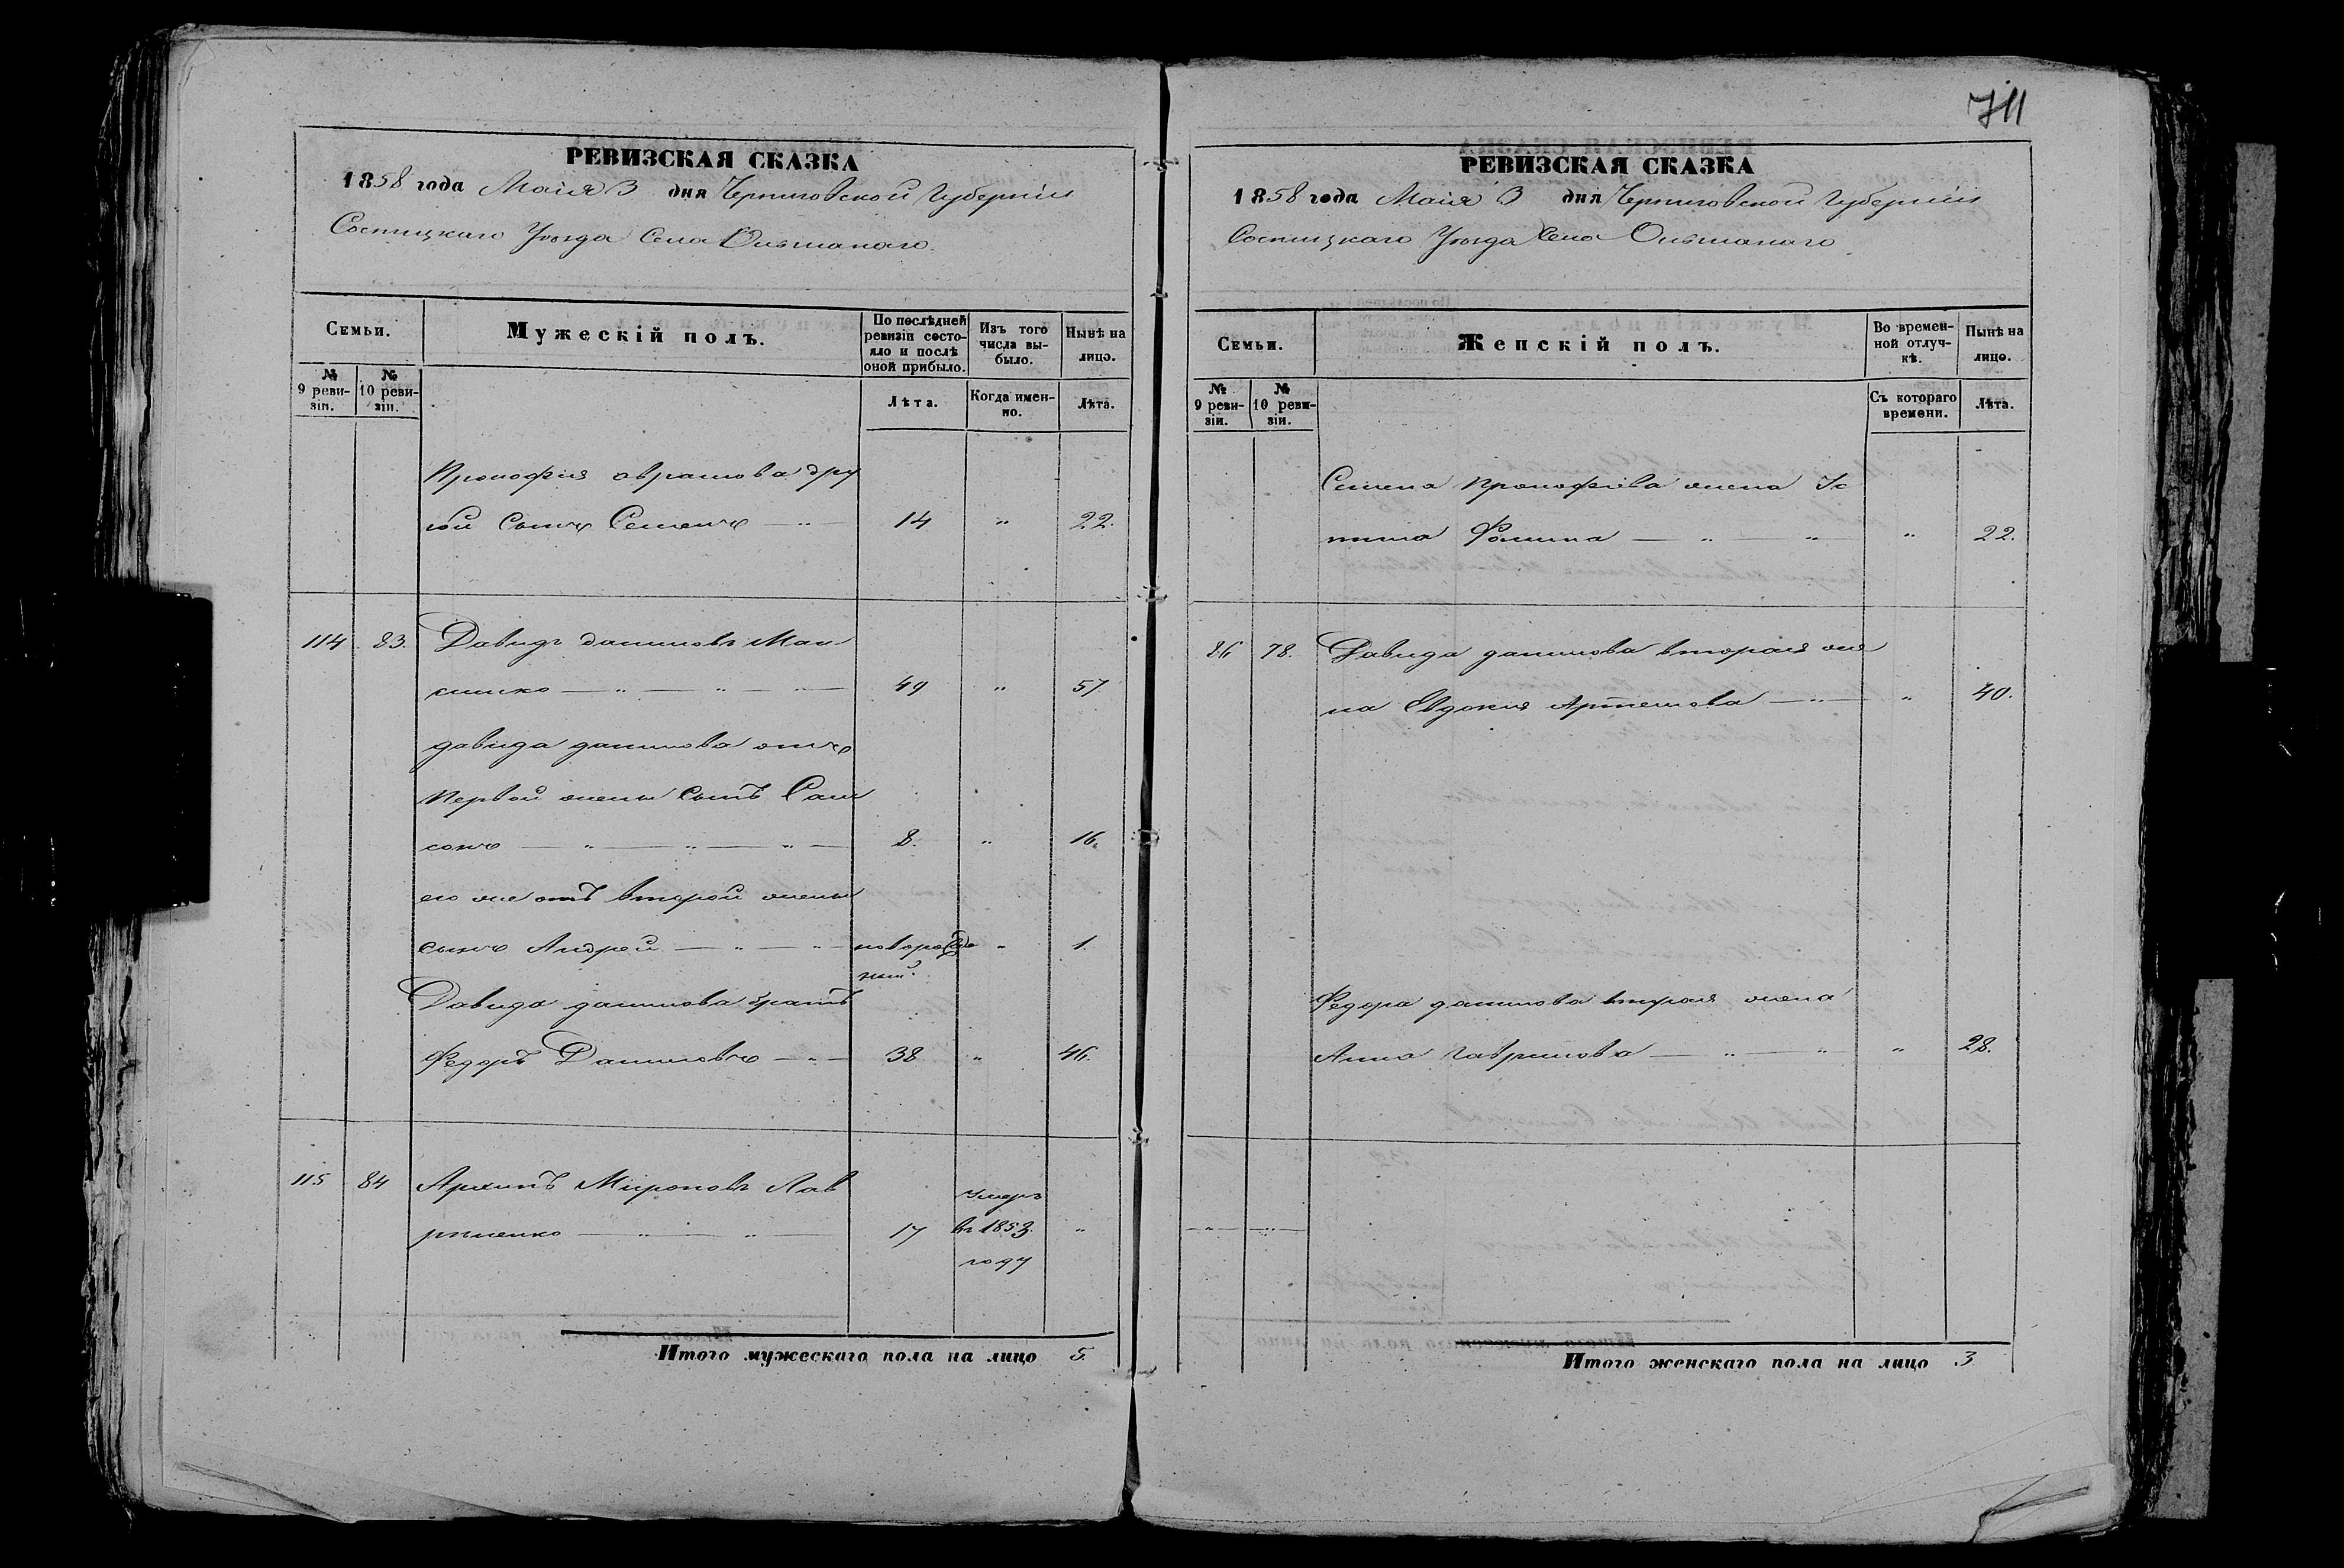 711
РЕВИЗСКАЯ СКАЗКА
1858 года Маія 3 дня Черниговской Губерніи
Сосницкаго Уѣзда Села Ольшанаго
Семьи.
Мужескій полъ.
По послѣдней ревизіи состояло и послѣ оной прибыло.
Изъ того числа выбыло.
Нынѣ на лицо.
№ 9 ревизіи.
№ 10 ревизіи.
Лѣта.
Когда именно.
Лѣта.
Прокофія аврамова дру
гой Сынъ Семенъ — „ — 14 „ 22.
114. 83. Давидъ даниловъ Мак
симко — „ — „ — „ — 49 „ 57
давида данилова отъ
Первой жены Сынъ Сам
сонъ — „ — „ — „ — 8. „ 16.
его же отъ второй жены
сынъ Андрей — „ — „ новорожде „ 1.
ный.
Давида данилова братъ
Федоръ Даниловъ — „ — 38 „ 46.
115 84 Архипъ Мироновъ Лав
риненко — „ — „ — 17 умеръ въ 1853. году „
Итого мужескаго пола на лицо 5.
РЕВИЗСКАЯ СКАЗКА
1858 года Маія 3 дня Черниговской Губерніи
Сосницкаго Уѣзда Села Ольшанаго
Семьи.
Женскій полъ.
Во временной отлучкѣ.
Нынѣ на лицо.
№ 9 ревизіи.
№ 10 ревизіи.
Съ котораго времени.
Лѣта.
Семена Прокофіева жена
Фомина — „ — „ „ 22.
86 78. Давида данилова вторая же
на Евдокия Артемова — „ — „ 40.
Федора данилова вторая жена
Анна Гаврилова — „ — „ „ 28.
— „ — — „ —
Итого женскаго пола на лицо 3